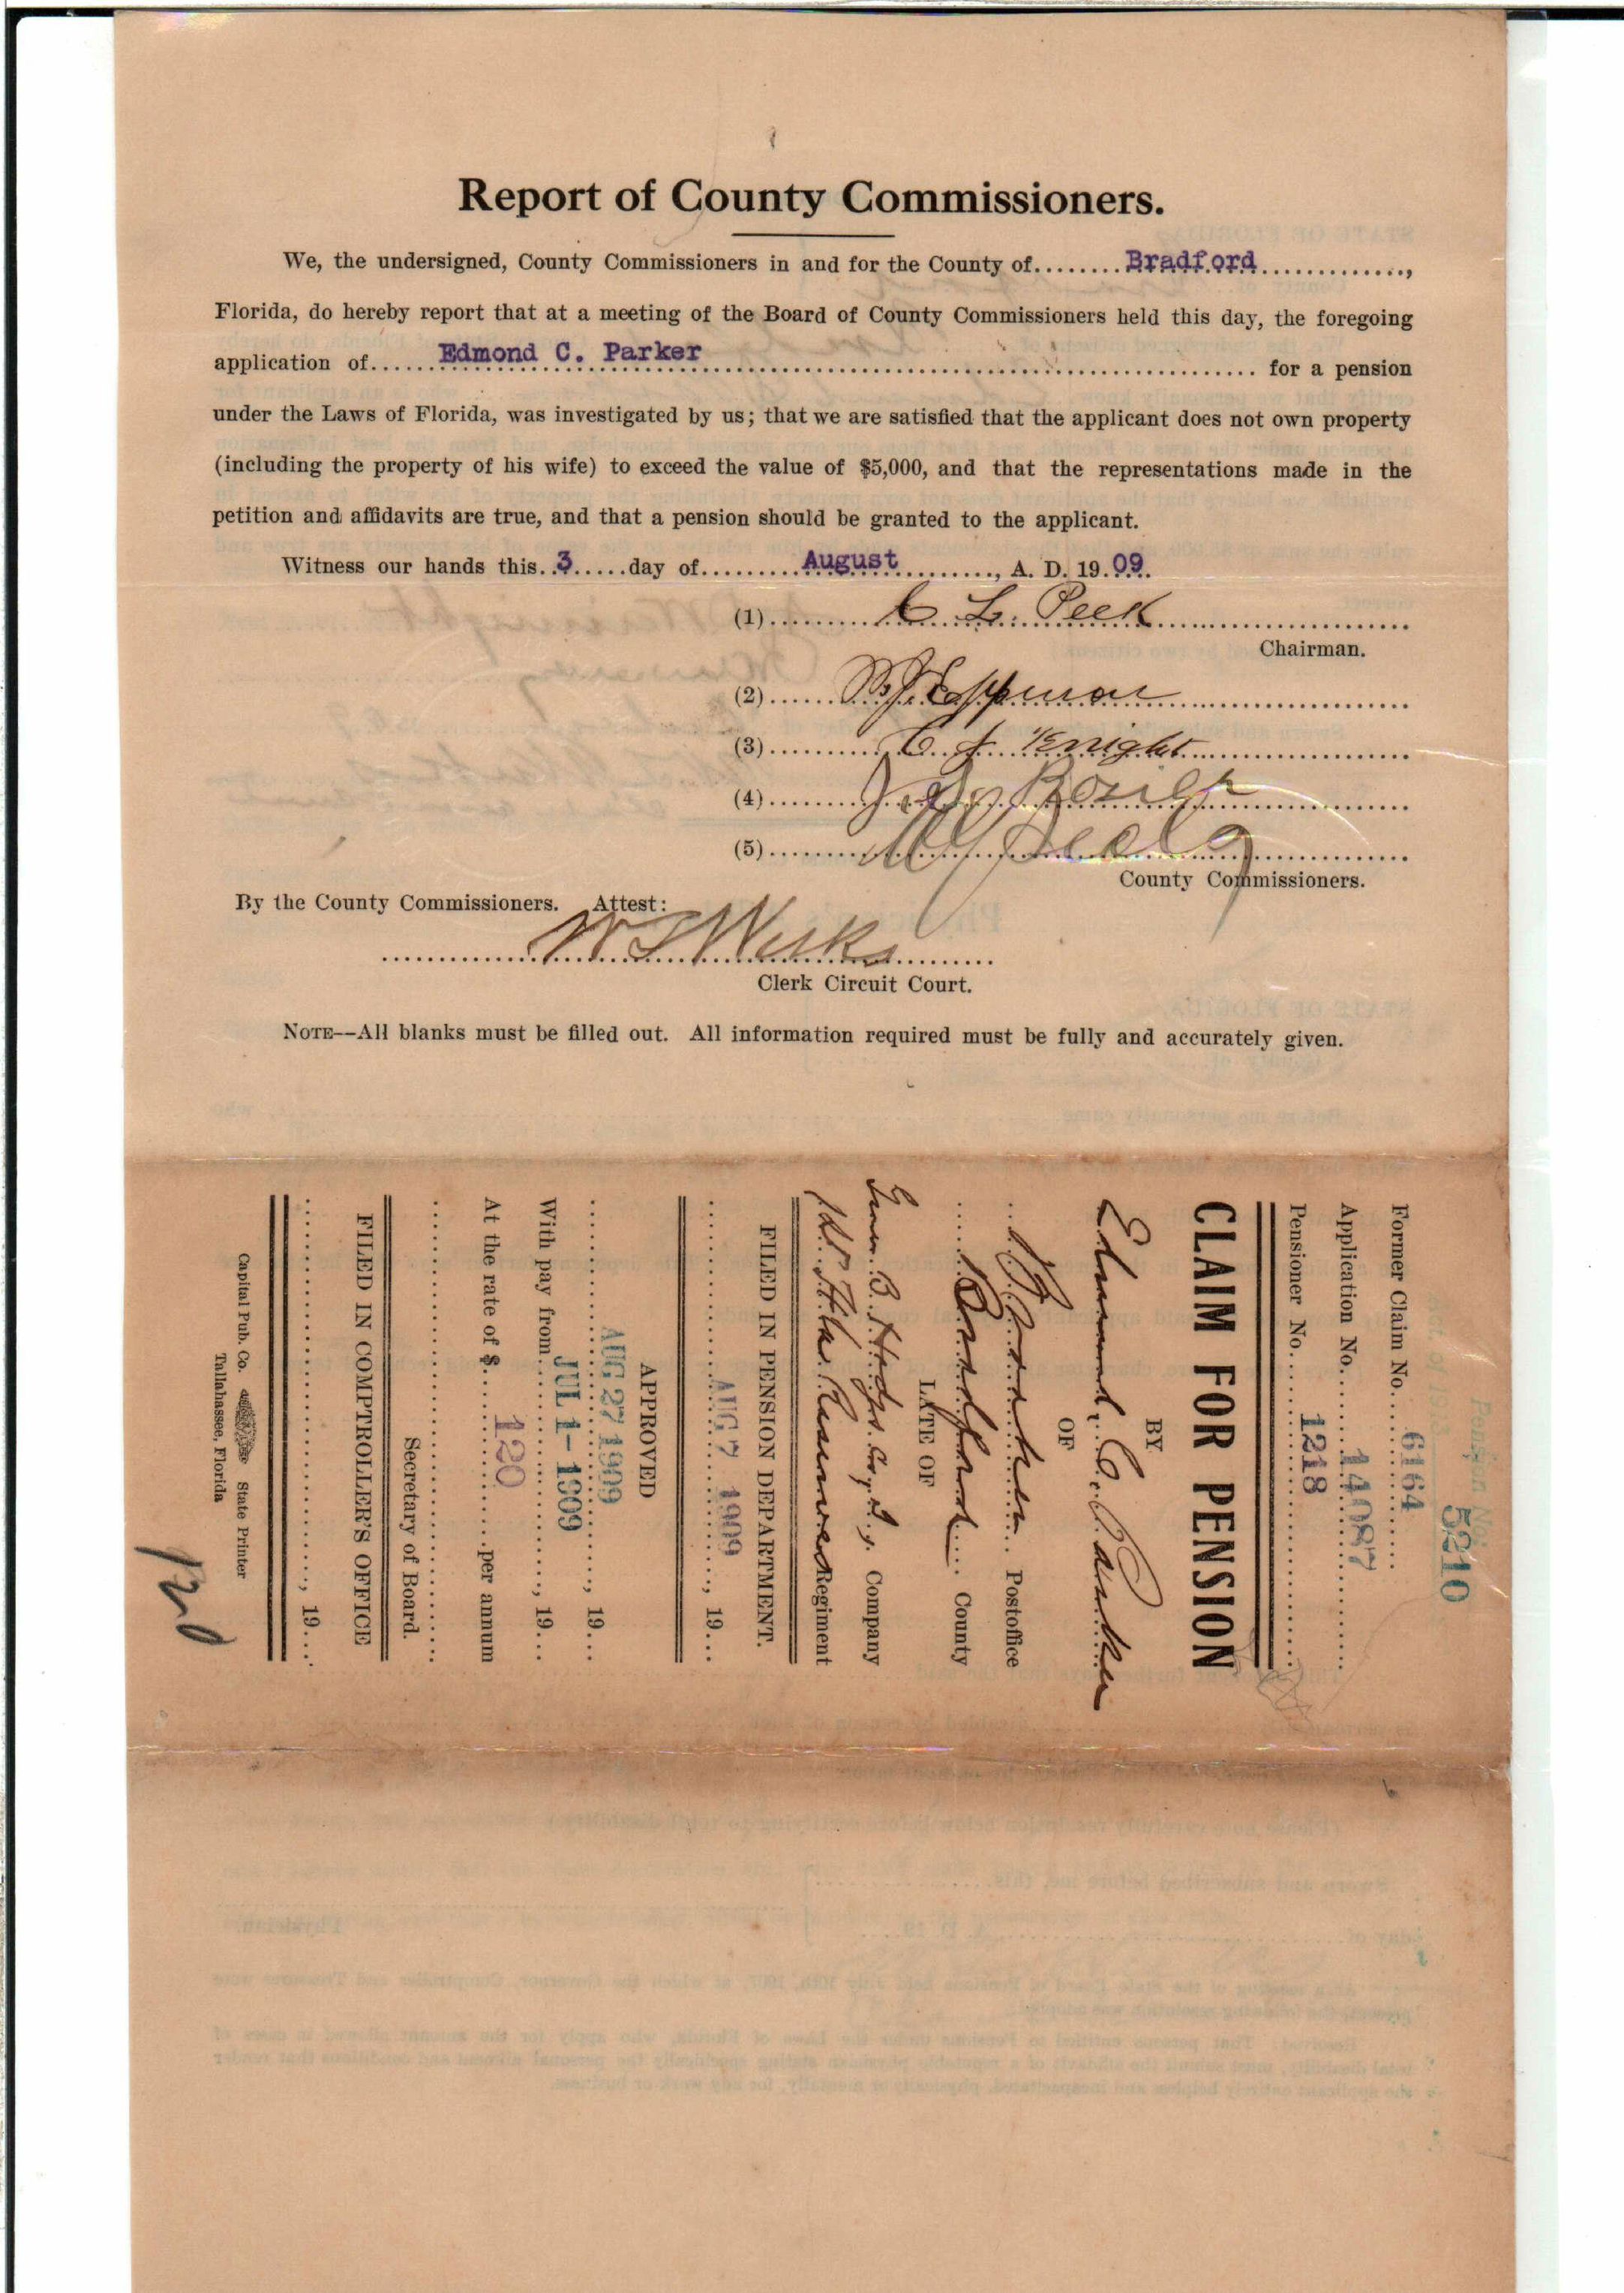 Report of County Commissioners.
We, the undersigned, County Commissioners in and for the County of........Bradford..............,
Florida, do hereby report that at a meeting of the Board of County Commissioners held this day, the foregoing
application of......Edmond C. Parker...... for a pension
under the Laws of Florida, was investigated by us; that we are satisfied that the applicant does not own property
(including the property of his wife) to exceed the value of $5,000, and that the representations made in the
petition and affidavits are true, and that a pension should be granted to the applicant.
Witness our hands this..3.....day of.........August.........., A. D. 19.09.
(1) C L. Peek
Chairman.
(2)
(3) C. J. Knight
(4) Rosier
(5)
County Commissioners.
By the County Commissioners. Attest:
Clerk Circuit Court.
NOTE--All blanks must be filled out. All information required must be fully and accurately given.
5210
Former Claim No. 6164
Application No. 14087
Pensioner No. 1218
CLAIM FOR PENSION
BY
Edmund C. Parker
OF
Postoffice
Bradford County
LATE OF
Company
1st Fla. Reserves Regiment
FILED IN PENSION DEPARTMENT.
AUG 7 1909, 19...
APPROVED
AUG 27 1909, 19...
With pay from JUL 1- 1909, 19...
At the rate of $ 120 per annum
Secretary of Board.
FILED IN COMPTROLLER'S OFFICE
, 19...
Capital Pub. Co. State Printer
Tallahassee, Florida